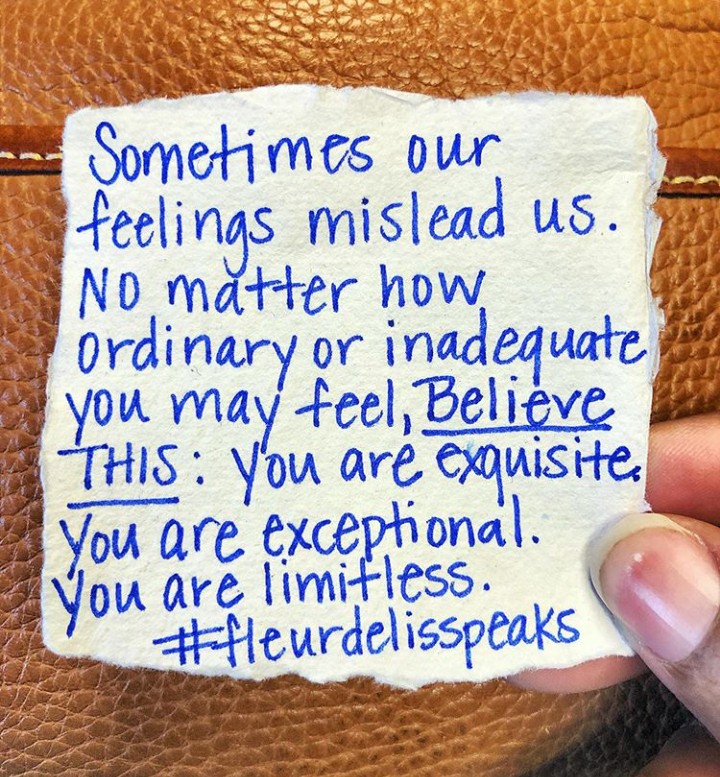 Sometimes our
feelings mislead us.
No matter how
ordinary or inadequate
you may feel, Believe
THIS: you are exquisite.
You are exceptional.
You are limitless.
#fleurdelisspeaks